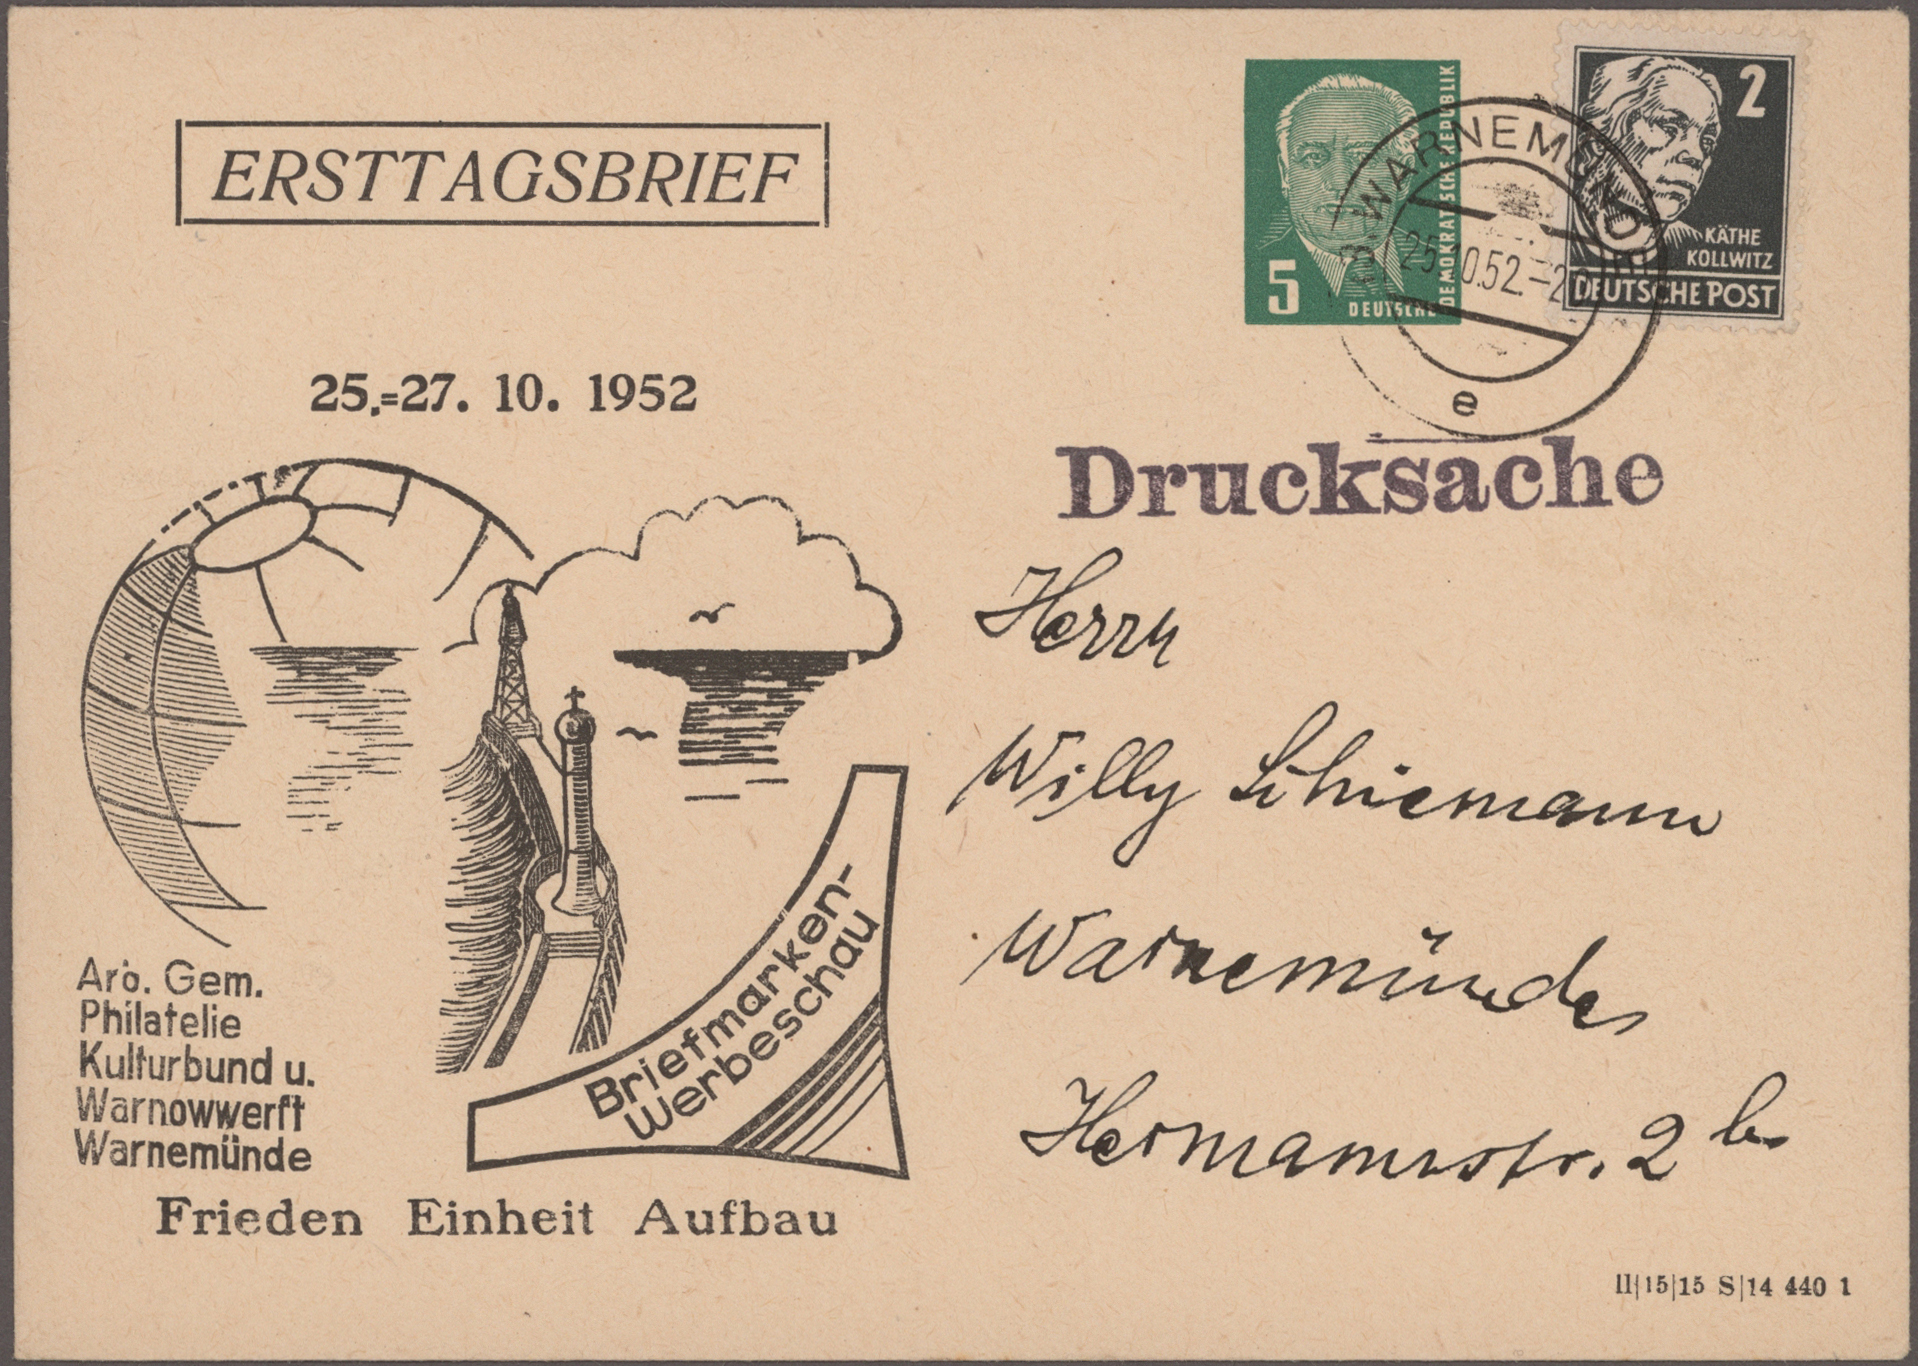 ERSTTAGSBRIEF
5
DEUTSCHE
DEMOKRATISCHE REPUBLIK
2
KÄTHE
KOLLWITZ
DEUTSCHE POST
WARNEMÜNDE
25.10.52.-20
e
25.=27. 10. 1952
Drucksache
Herrn
Willy Schiemann
Warnemünde
Hermannstr. 2 b
Arb. Gem.
Philatelie
Kulturbund u.
Warnowwerft
Warnemünde
Briefmarken-
Werbeschau
Frieden Einheit Aufbau
II|15|15 S|14 440 1